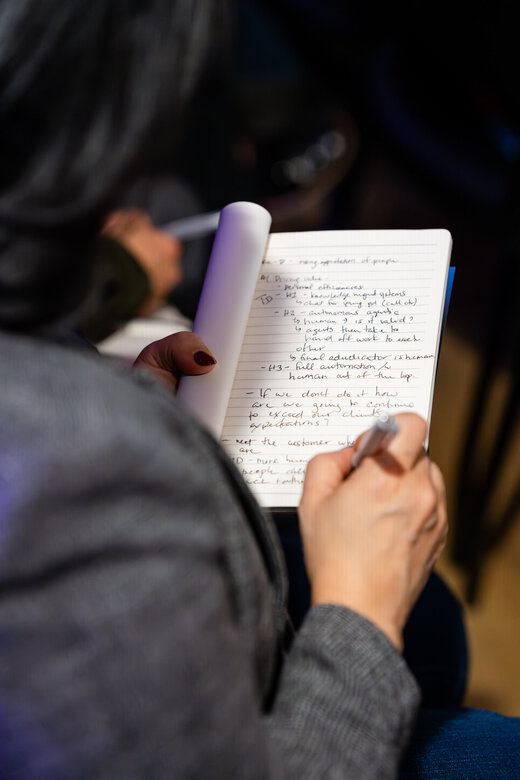 - rising expectations of people
Driving value
- personal efficiencies
- H1 - knowledge mgmt systems
↳ chat for young ppl (call ctr)
- H2 - autonomous agents
↳ human ? is it valid?
↳ agents then take to
hand off work to each
other
↳ final adjudicator is human
- H3 - full automation w/o
human out of the loop.
- If we don't do it how
are we going to continue
to exceed our clients
expectations?
- meet the customer where
are
D - more human
people